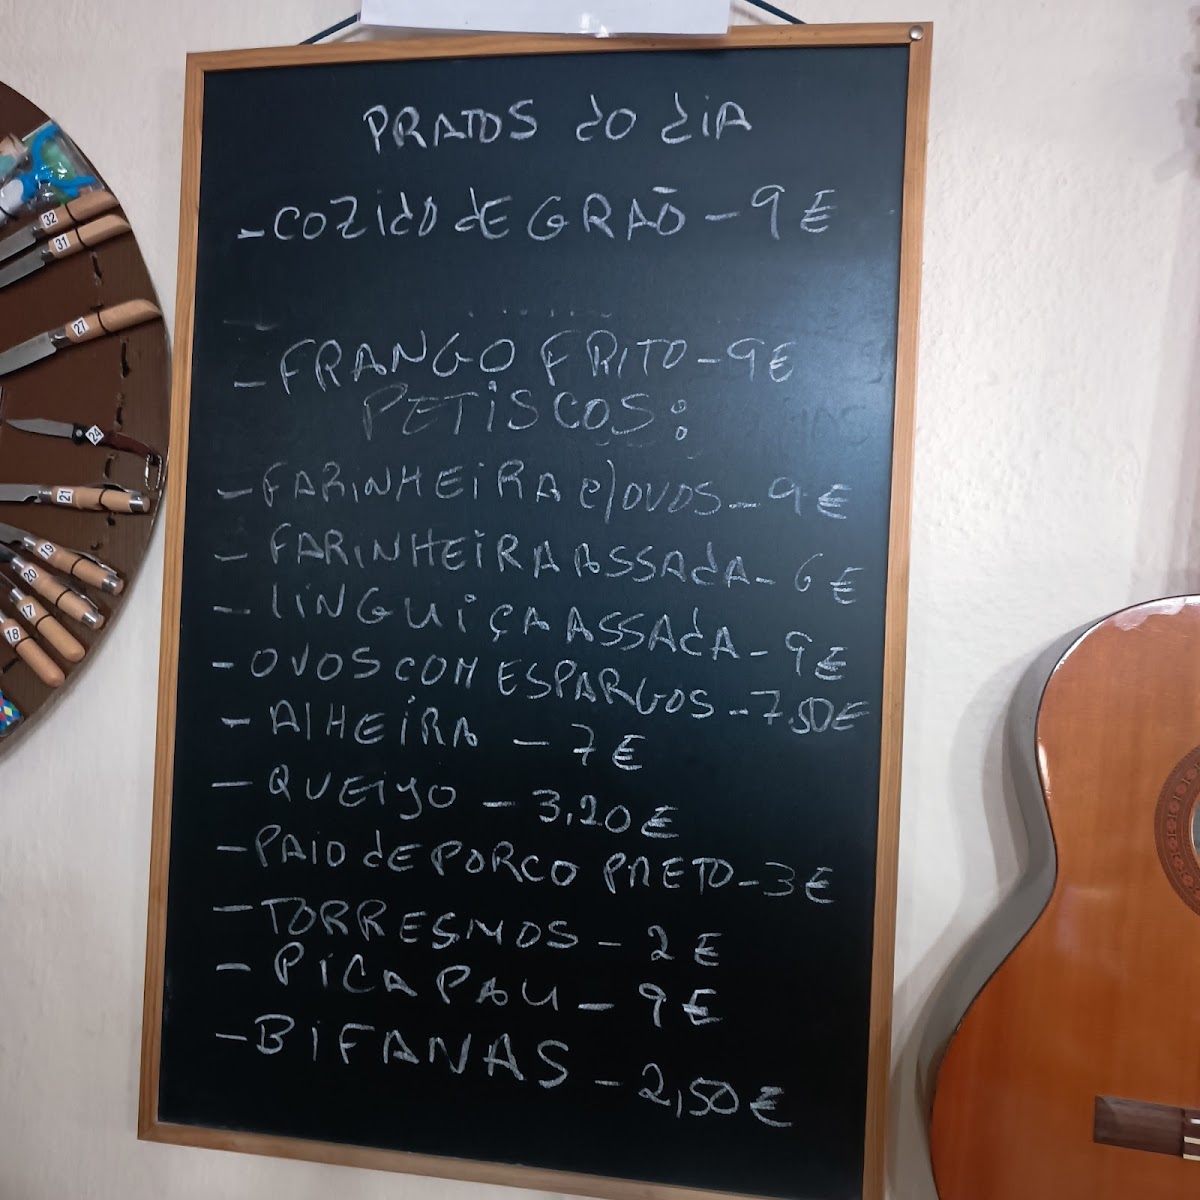 PRATOS do diA
- COZido dE GRÃO - 9 €
- FRANGO FRITO - 9€
PETISCOS:
- FARINHEIRA c/OVOS - 9 €
- FARINHEIRA ASSAdA - 6 €
- LINGUIÇA ASSAdA - 9€
- OVOS COM ESPARGOS - 7.50€
- AlHEIRA - 7€
- QUEIYO - 3,20€
- PAIO dE PORCO PRETO - 3€
- TORRESMOS - 2€
- PICA PAU - 9€
- BIFANAS - 2,50€
32
31
27
24
21
19
20
17
18